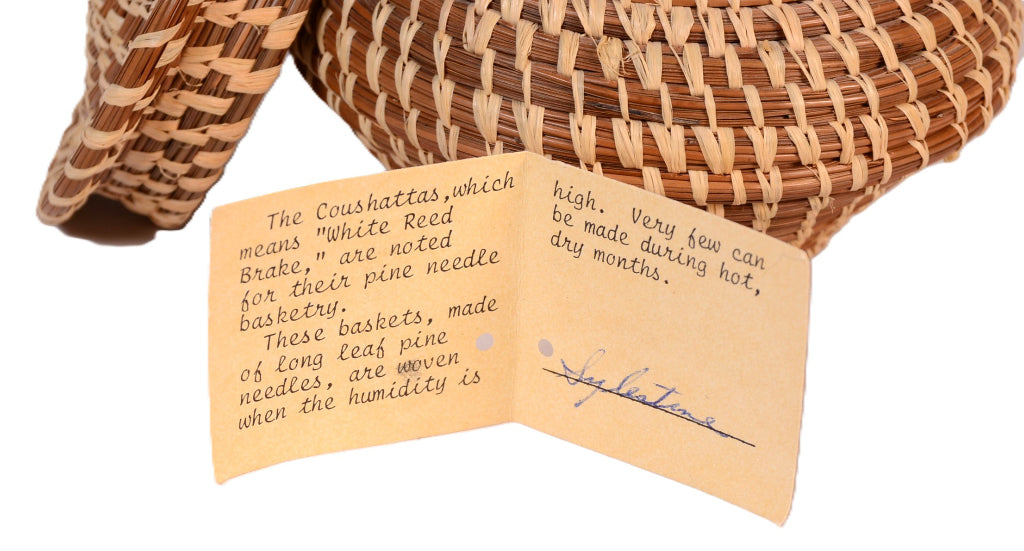 The Coushattas,which
means "White Reed
Brake," are noted
for their pine needle
basketry.
These baskets, made
of long leaf pine
needles, are woven
when the humidity is
high. Very few can
be made during hot,
dry months.
Sylestine